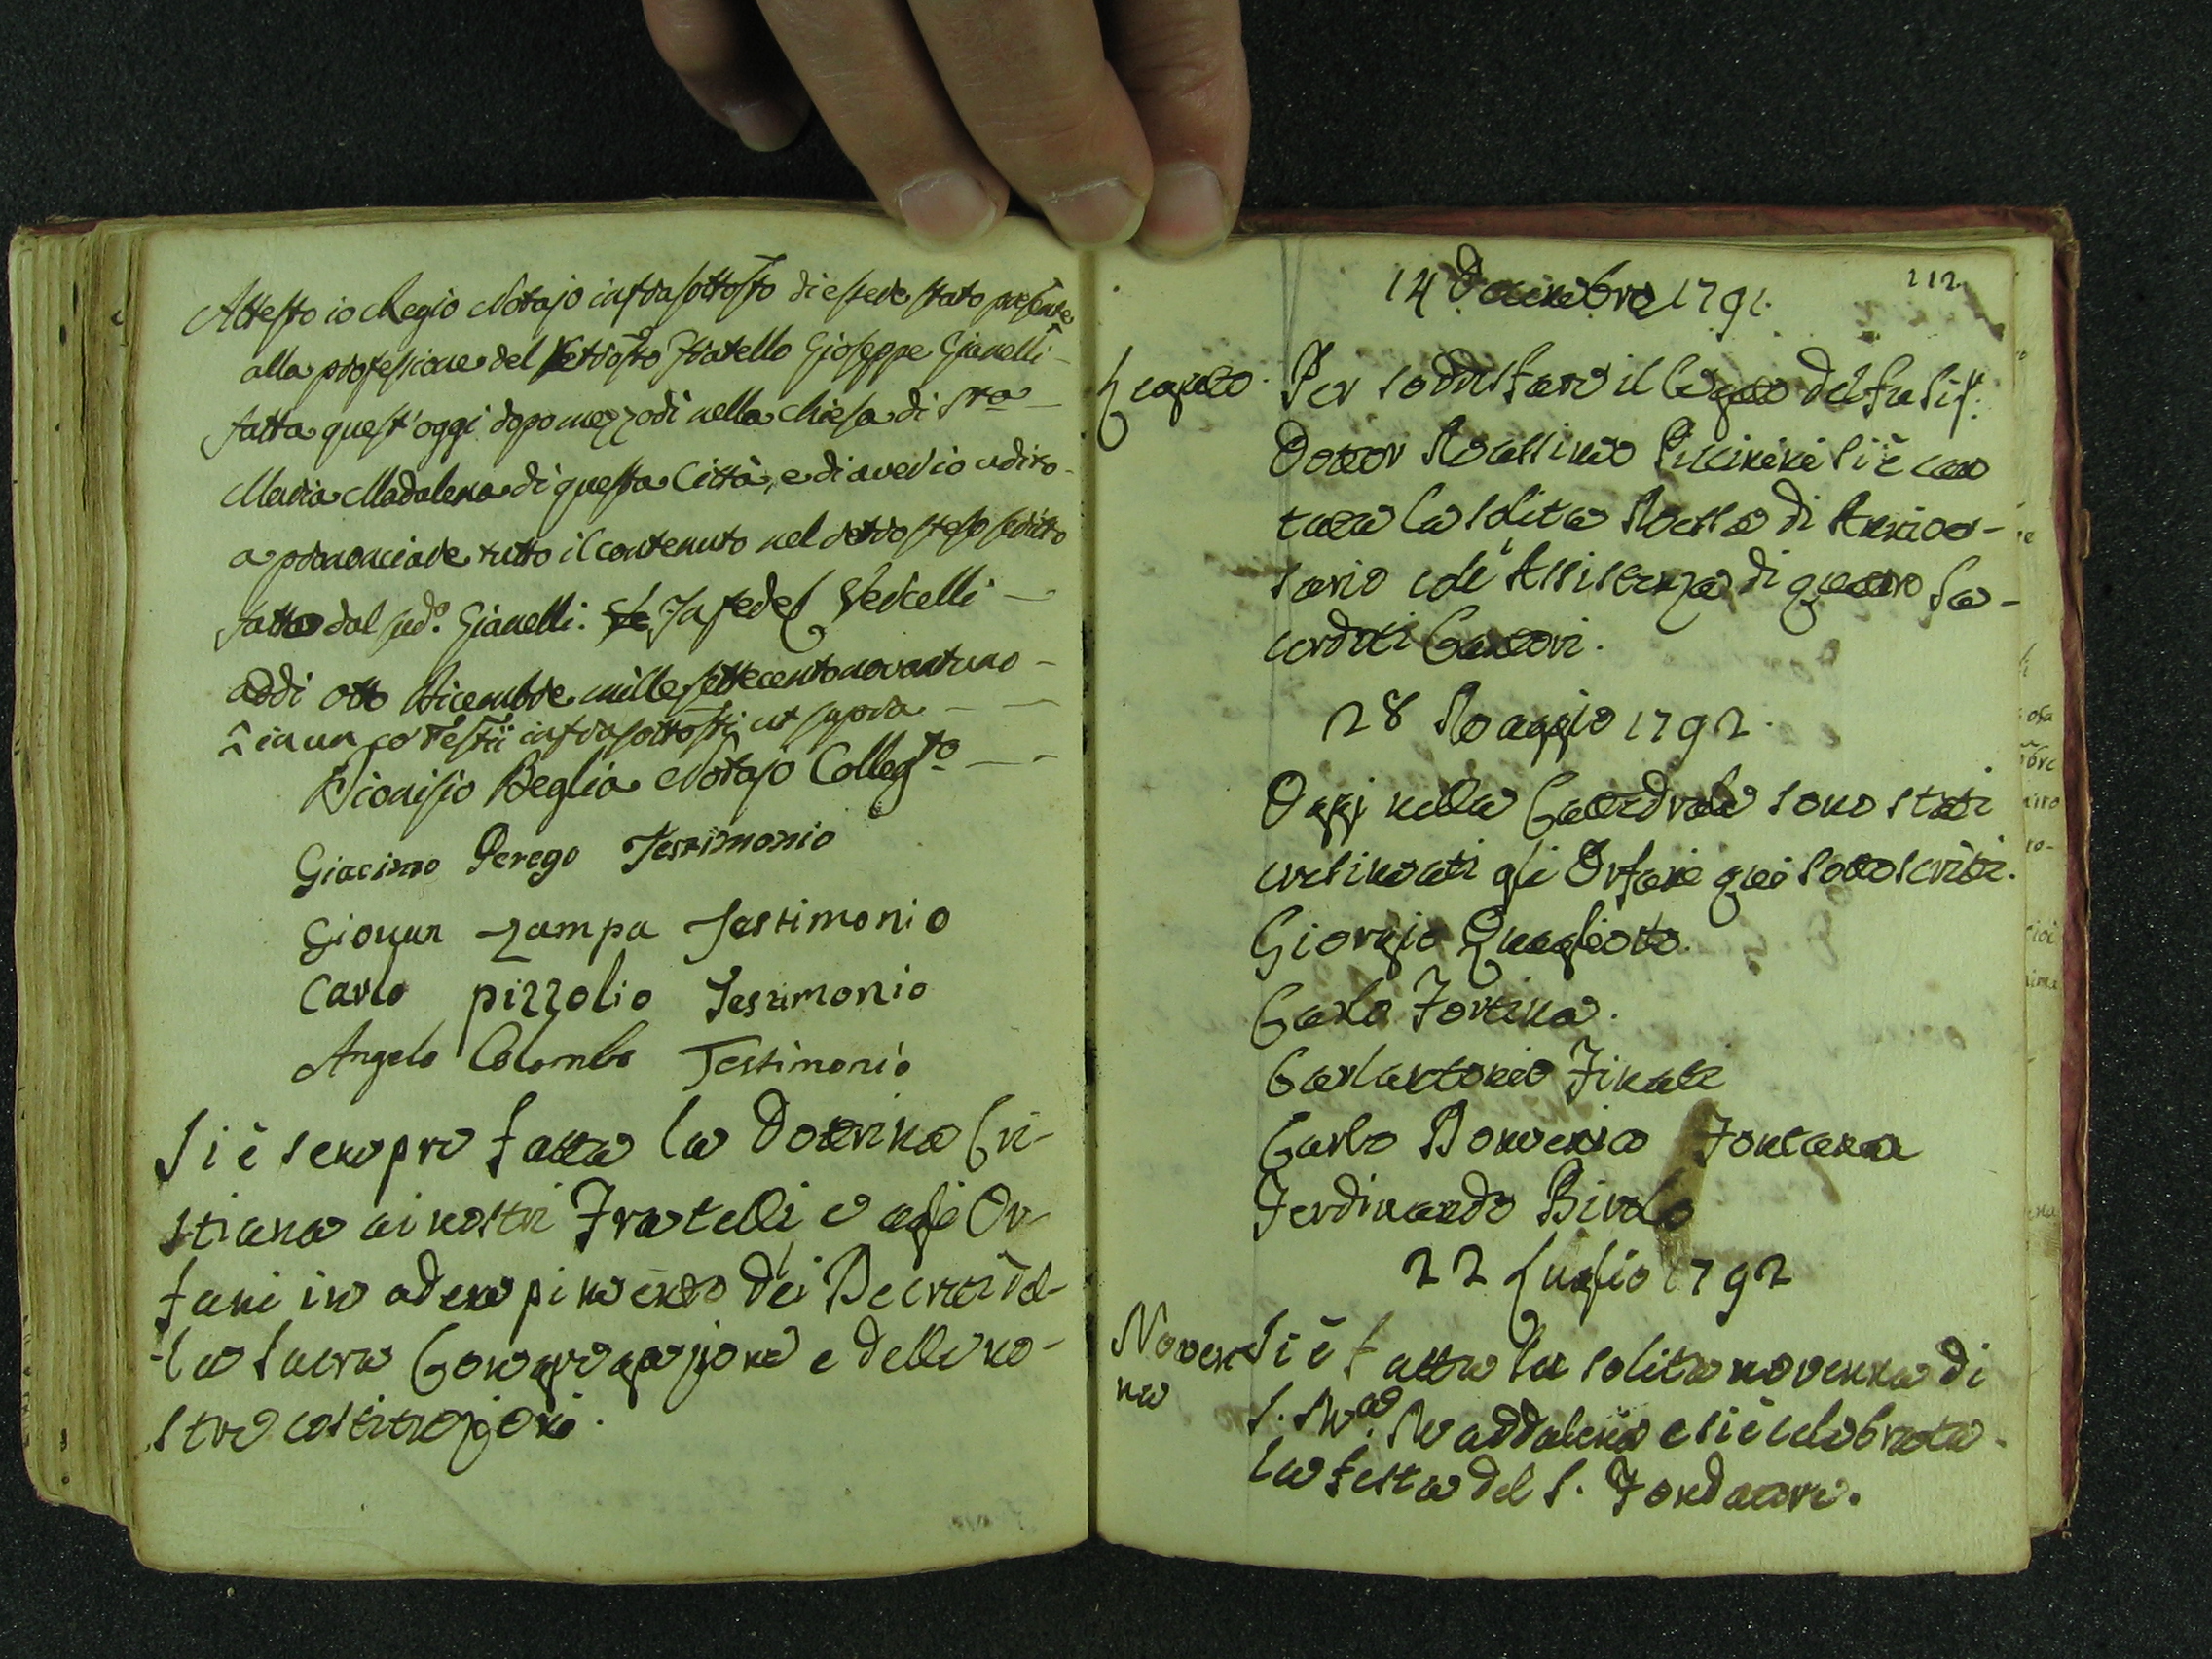 Attesto io Regio Notajo infrasottos̃to di essere stato presente
alla professione del Retros̃to Fratello Gioseppe Gianelli
fatta quest'oggi dopo mezzodi nella Chiesa di Sta
Maria Madalena di questa Città, e di aver io udito
a prononciare tutto il contenuto nel retro steso scritto
fatto dal sudo. Gianelli. In fede Vercelli
addi otto Dicembre mille settecento novantuno
in un co Testii infrasottosti, ut supra
Dionisio Beglia Notajo Collegto
Giacimo Perego Testimonio
Giouan Zampa Testimonio
Carlo pizzolio Testimonio
Angelo Colombo Testimonio
Si è sempre fatta la Dottrina Cri-
stiana ai nostri Fratelli e agli Or-
fani in adempimento dei Decreti del-
la Sacra Congregazione e delle no-
stre costituzioni.
212.
14 Decembre 1791.
Legato. Per sodisfare il legato del fu Sigr.
Dottor Massimo Piccinini si è can
tata la solita Messa di Anniver-
sario coll'Assistenza di quattro Sa-
cerdoti Cantori.
28 Maggio 1792.
Oggi nella Cattedrale sono stati
cresimati gli Orfani qui sottoscritti.
Giorgio Quaglioto.
Carlo Fortina.
Carlantonio Finate
Carlo Domenico Fontana
Ferdinando Birolo
22 Luglio 1792
Noven
na
Si è fatta la solita novenna di
S. Ma. Maddalena e si è celebrata
la festa del S. Fondatore.